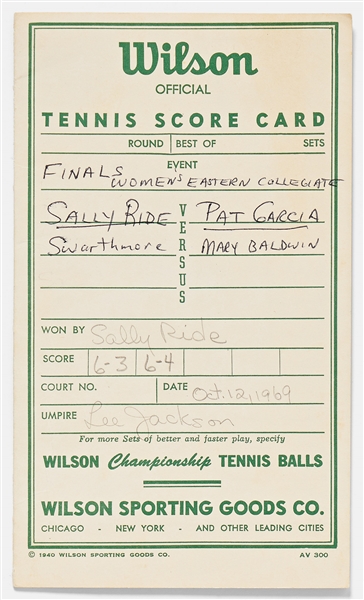 Wilson
OFFICIAL
TENNIS SCORE CARD
ROUND BEST OF SETS
EVENT
FINALS WOMEN'S EASTERN COLLEGIATE
SALLY RIDE VERSUS PAT GARCIA
Swarthmore MARY BALDWIN
WON BY Sally Ride
SCORE 6-3 6-4
COURT NO. DATE Oct. 12, 1969
UMPIRE Lee Jackson
For more Sets of better and faster play, specify
WILSON Championship TENNIS BALLS
WILSON SPORTING GOODS CO.
CHICAGO - NEW YORK - AND OTHER LEADING CITIES
© 1940 WILSON SPORTING GOODS CO. AV 300